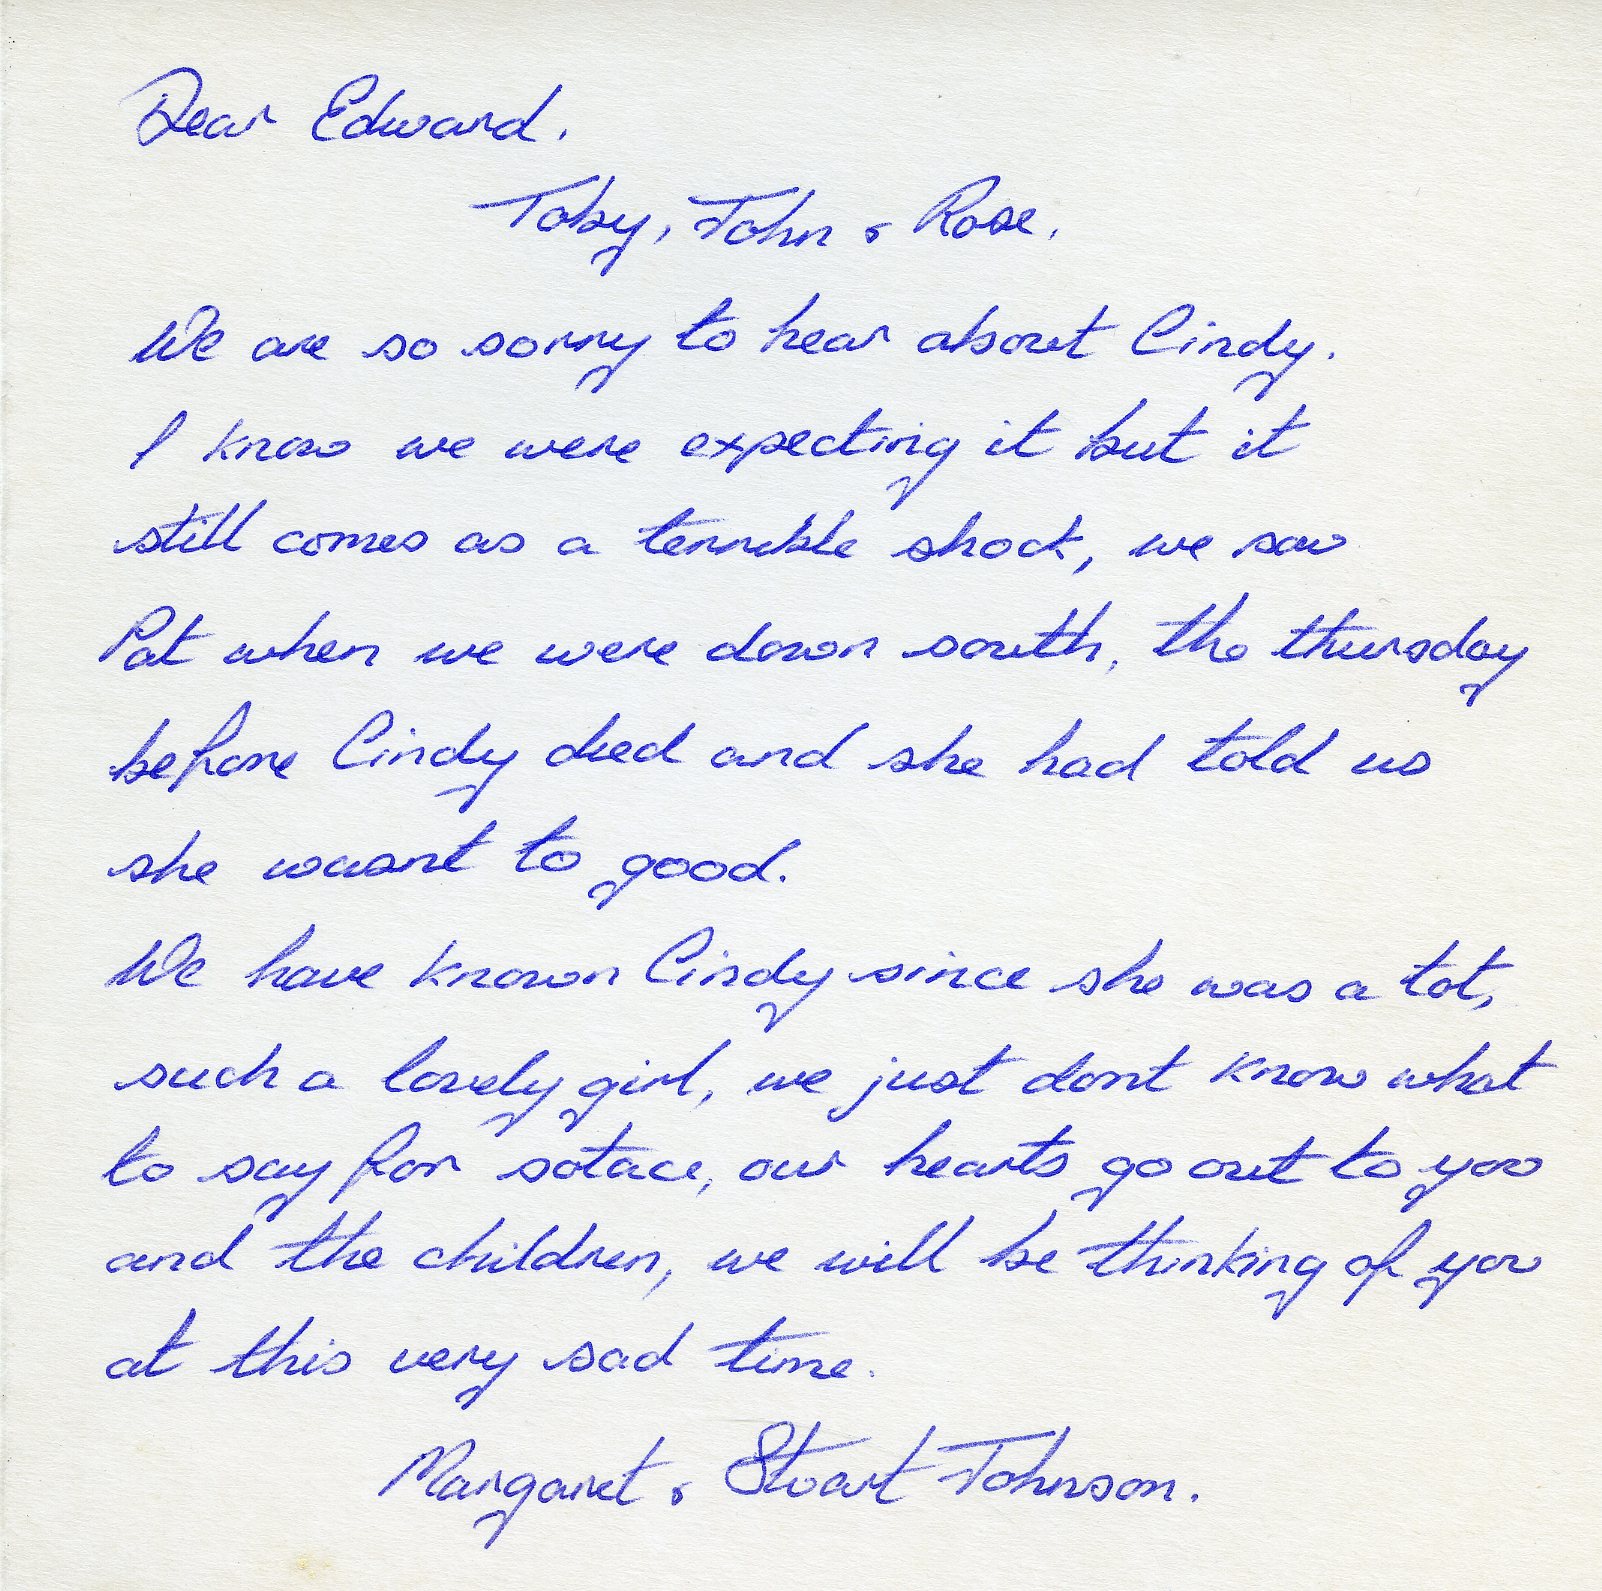 Dear Edward.
Toby, John & Rose.
We are so sorry to hear about Cindy.
I know we were expecting it but it
still comes as a terrible shock, we saw
Pat when we were down south, the thursday
before Cindy died and she had told us
she wasnt to good.
We have known Cindy since she was a tot,
such a lovely girl, we just dont know what
to say for solace, our hearts go out to you
and the children, we will be thinking of you
at this very sad time.
Margaret & Stuart Johnson.